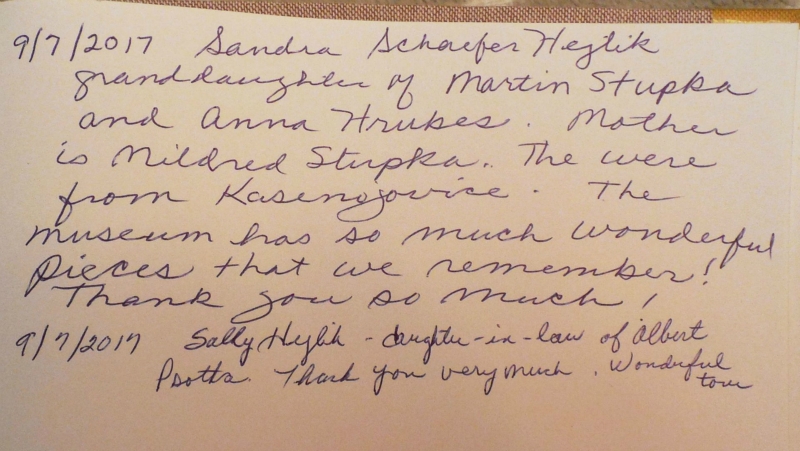 9/7/2017 Sandra Schaefer Hejtik
granddaughter of Martin Stupka
and Anna Hrubes. Mother
is Mildred Stupka. The were
from Kasengovice. The
museum has so much wonderful
pieces that we remember!
Thank you so much!
9/7/2017 Sally Hejlik - daughter-in-law of Albert
Psotta. Thank you very much. Wonderful
tour